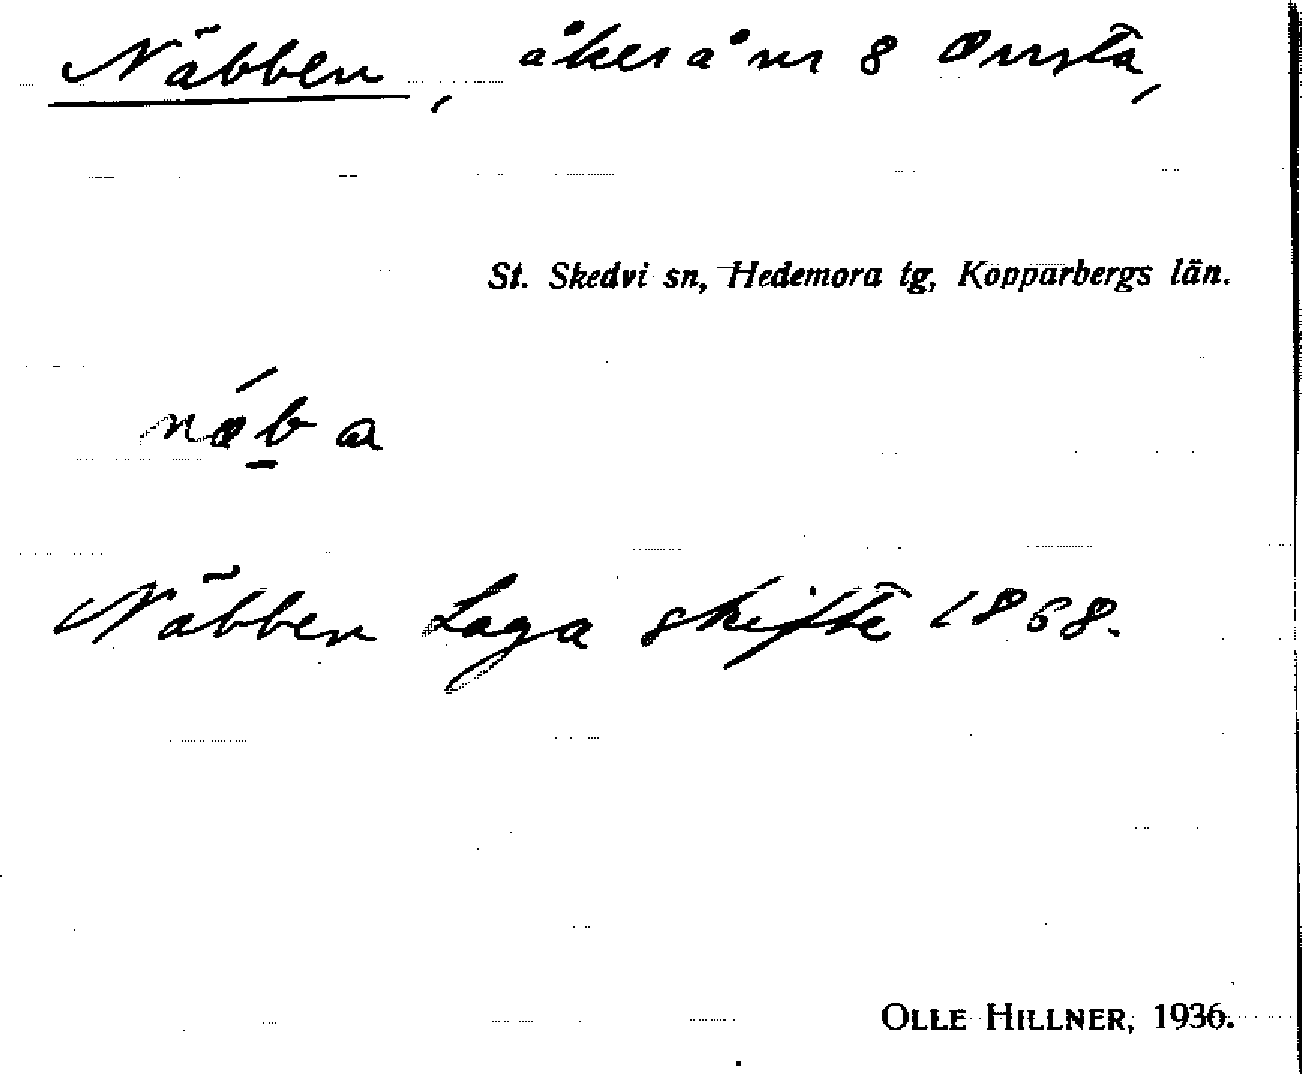 Näbben, åker å nr 8 Onsta,
St. Skedvi sn, Hedemora tg, Kopparbergs län.
næ̍b̲ a
Näbben Laga skifte 1868.
OLLE HILLNER, 1936.